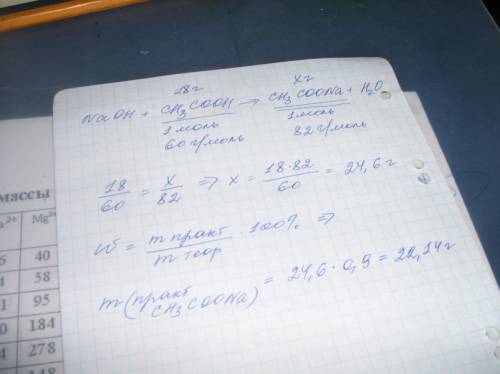 18г
xг
NaOH + CH₃COOH → CH₃COONa + H₂O
1 моль
1 моль
60 г/моль
82 г/моль
18/60 = x/82 => x = 18·82/60 = 24,6 г
W = m практ / m теор · 100% =>
m (практ CH₃COONa) = 24,6 · 0,9 = 22,14 г
массы
Mg²⁺
6 40
4 58
1 95
0 184
4 278
148